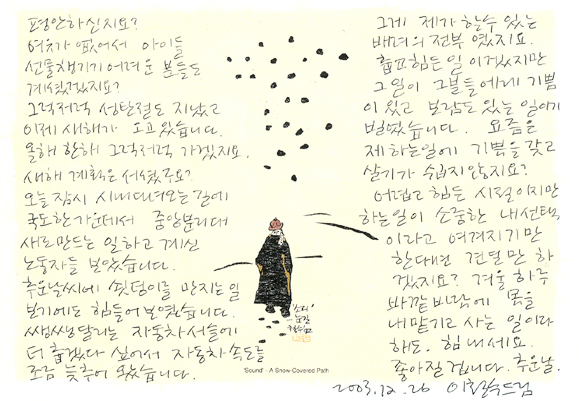 평안하신지요?
여유가 없어서 아이들
선물챙기기 어려운 분들도
계셨겠지요?
그럭저럭 성탄절도 지났고
이제 새해가 오고있습니다.
올해 한해 그럭저럭 가겠지요.
새해 계획은 세우셨지요?
오늘 잠시 시내다녀오는길에
국도한가운데서 중앙분리대
새로만드는 일하고 계신
노동자들 보았습니다.
추운날씨에 쇳덩이를 만지는일
보기에도 힘들어보였습니다.
쌩쌩달리는 자동차 서슬에
더 춥겠다 싶어서 자동차속도를
조금 늦추어 왔습니다.
그게 제가 할수 있는
배려의 전부 였지요.
춥고힘든일 이겠지만
그일이 그분들에게 기쁨
이 있고 보람도있는 일이기
빌었습니다. 요즘은
제 하는일에 기쁨을 갖고
살기가 쉽지않지요?
어렵고 힘든 시절이지만
하는일이 소중한 내선택
이라고 여겨지기만
한다면 견딜만 하
겠지요? 겨울 하루
바깥 바람에 몸을
내맡기고 사는 일이라
해도. 힘내세요.
좋아질겁니다. 추운날.
2003.12.26 이철수드림
'소리'
눈길
'Sound' - A Snow-Covered Path